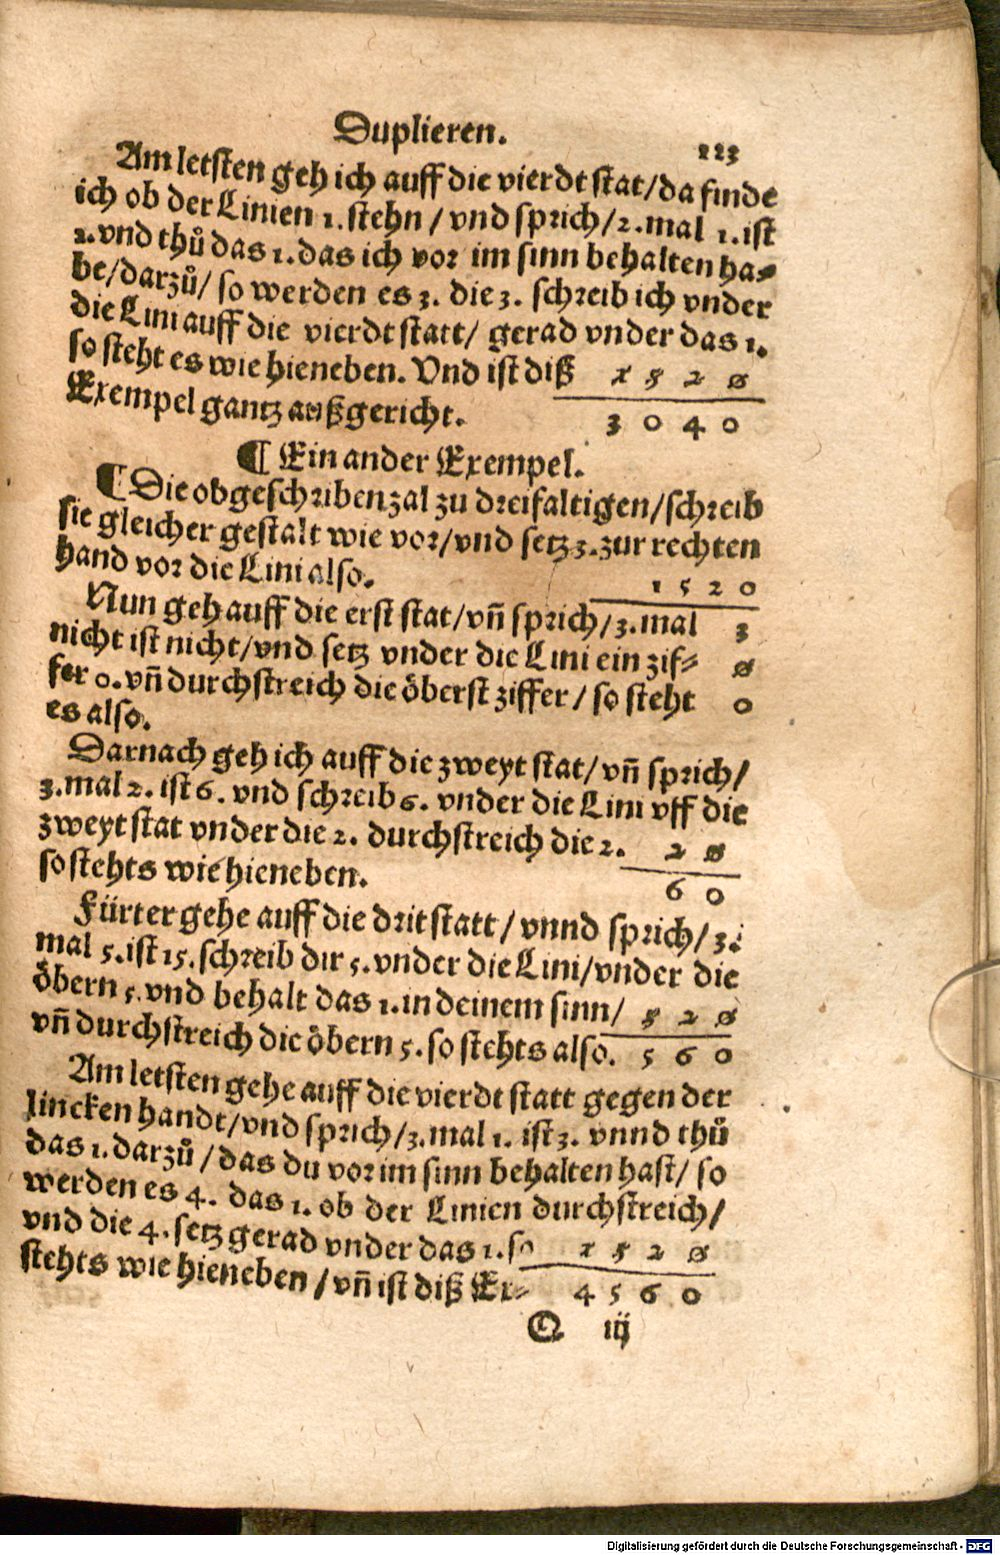 Duplieren.
123
Am letsten geh ich auff die vierdt stat/da finde
ich ob der Linien 1. stehn / vnd sprich/2.mal 1.ist
2.vnd thů das 1.das ich vor im sinn behalten ha⸗
be/darzů/ so werden es 3. die 3. schreib ich vnder
die Lini auff die vierdt statt/ gerad vnder das 1.
so steht es wie hieneben. Vnd ist diß 1 5 2 0
Exempel gantz außgericht. 3 0 4 0
¶ Ein ander Exempel.
¶ Die obgeschriben zal zu dreifaltigen/schreib
sie gleicher gestalt wie vor/vnd setz 3.zur rechten
hand vor die Lini also. 1 5 2 0
Nun geh auff die erst stat/vñ sprich/3.mal 3
nicht ist nicht/vnd setz vnder die Lini ein zif⸗ 0
fer 0.vñ durchstreich die öberst ziffer/so steht 0
es also.
Darnach geh ich auff die zweyt stat/vñ sprich/
3.mal 2. ist 6. vnd schreib 6. vnder die Lini vff die
zweyt stat vnder die 2. durchstreich die 2. 2 0
so stehts wie hieneben. 6 0
Fürter gehe auff die drit statt/vnnd sprich/3.
mal 5.ist 15.schreib dir 5.vnder die Lini/vnder die
öbern 5.vnd behalt das 1.in deinem sinn/ 5 2 0
vñ durchstreich die öbern 5. so stehts also. 5 6 0
Am letsten gehe auff die vierdt statt gegen der
lincken handt/vnd sprich/3.mal 1. ist 3. vnnd thů
das 1.darzů/das du vor im sinn behalten hast/ so
werden es 4. das 1. ob der Linien durchstreich/
vnd die 4.setz gerad vnder das 1.so 1 5 2 0
stehts wie hieneben/vñ ist diß Ex⸗ 4 5 6 0
Q iij
Digitalisierung gefördert durch die Deutsche Forschungsgemeinschaft - DFG